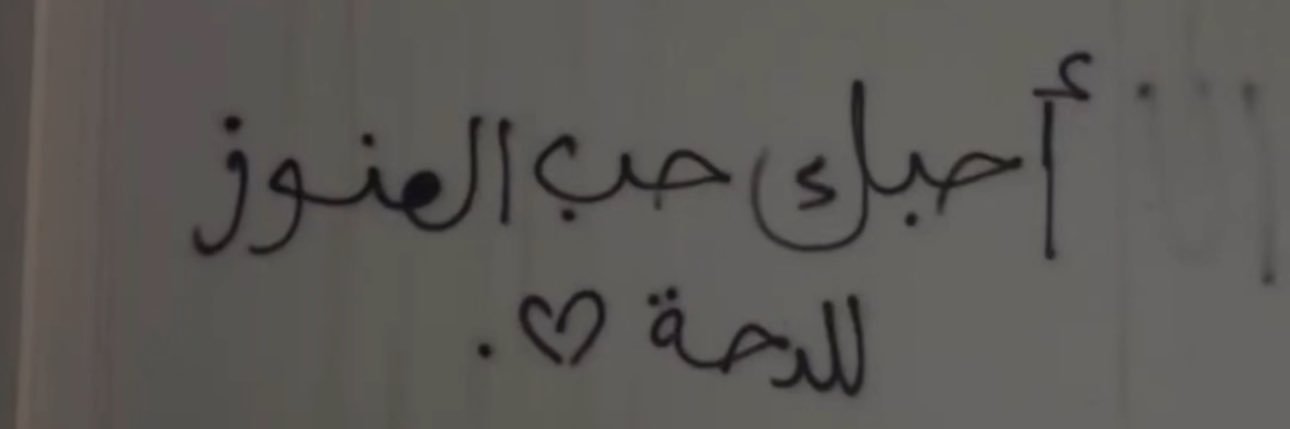 أحبك حب العنوز
للدحة ♡.